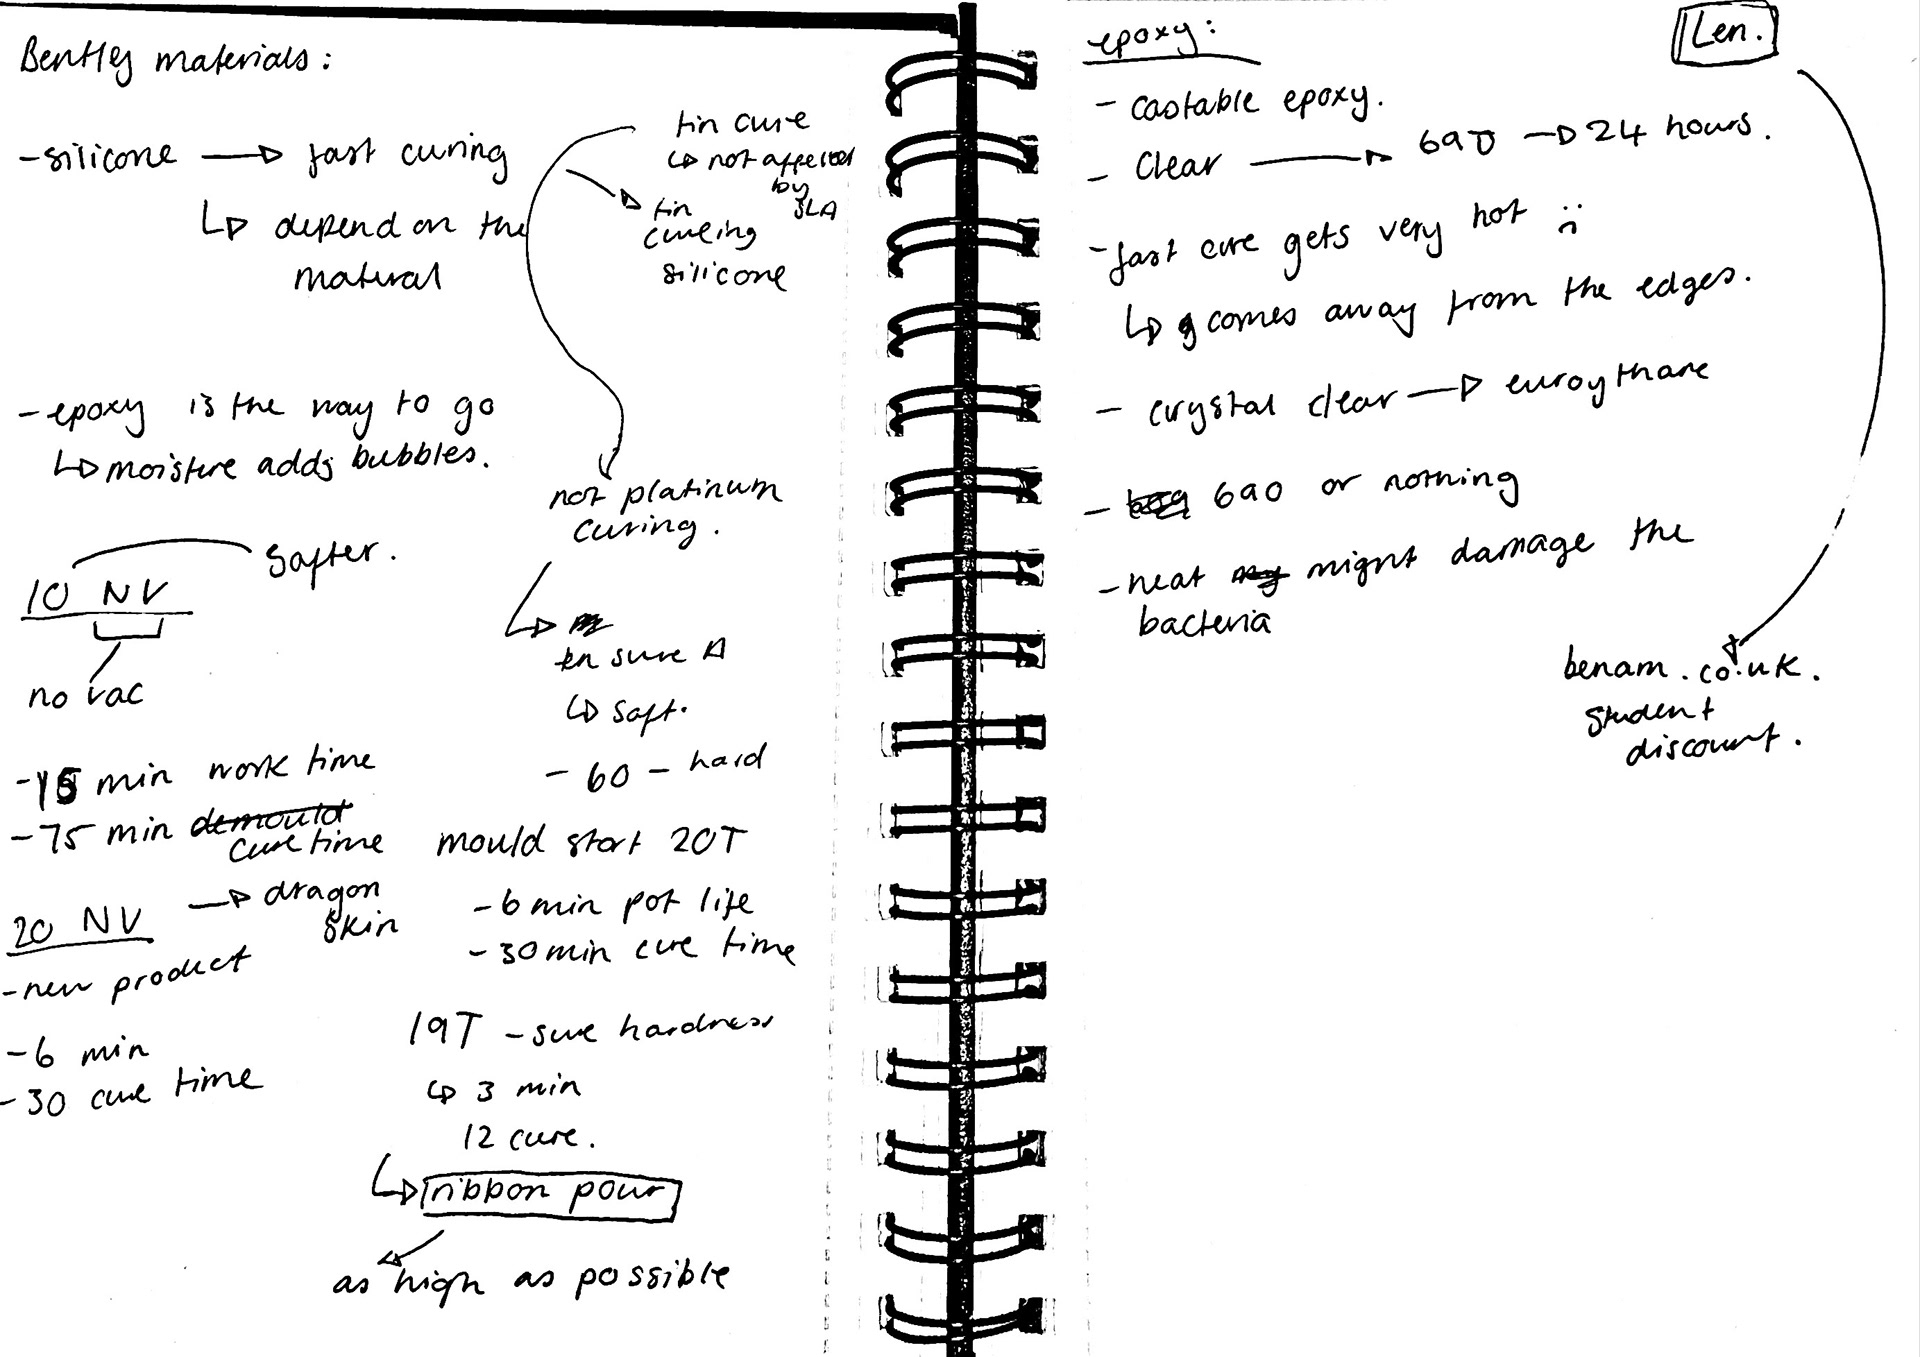 Bentley materials:
- silicone → fast curing
↳ depend on the
material
tin cure
↳ not affected
by
SLA
tin
cureing
silicone
- epoxy is the way to go
↳ moisture adds bubbles.
not platinum
curing.
softer.
10 NV
no vac
↳
en sure A
↳ soft.
- 60 - hard
- 15 min work time
- 75 min demould
cure time
20 NV → dragon
skin
- new product
- 6 min
- 30 cure time
mould start 20T
- 6 min pot life
- 30 min cure time
19T - sure hardness
↳ 3 min
12 cure.
↳ ribbon pour
as high as possible
epoxy:
Len.
- castable epoxy.
- Clear → 690 → 24 hours.
- fast cure gets very hot :(
↳ comes away from the edges.
- crystal clear → euroythane
- 690 or nothing
- heat might damage the
bacteria
benam.co.uk.
student
discount.